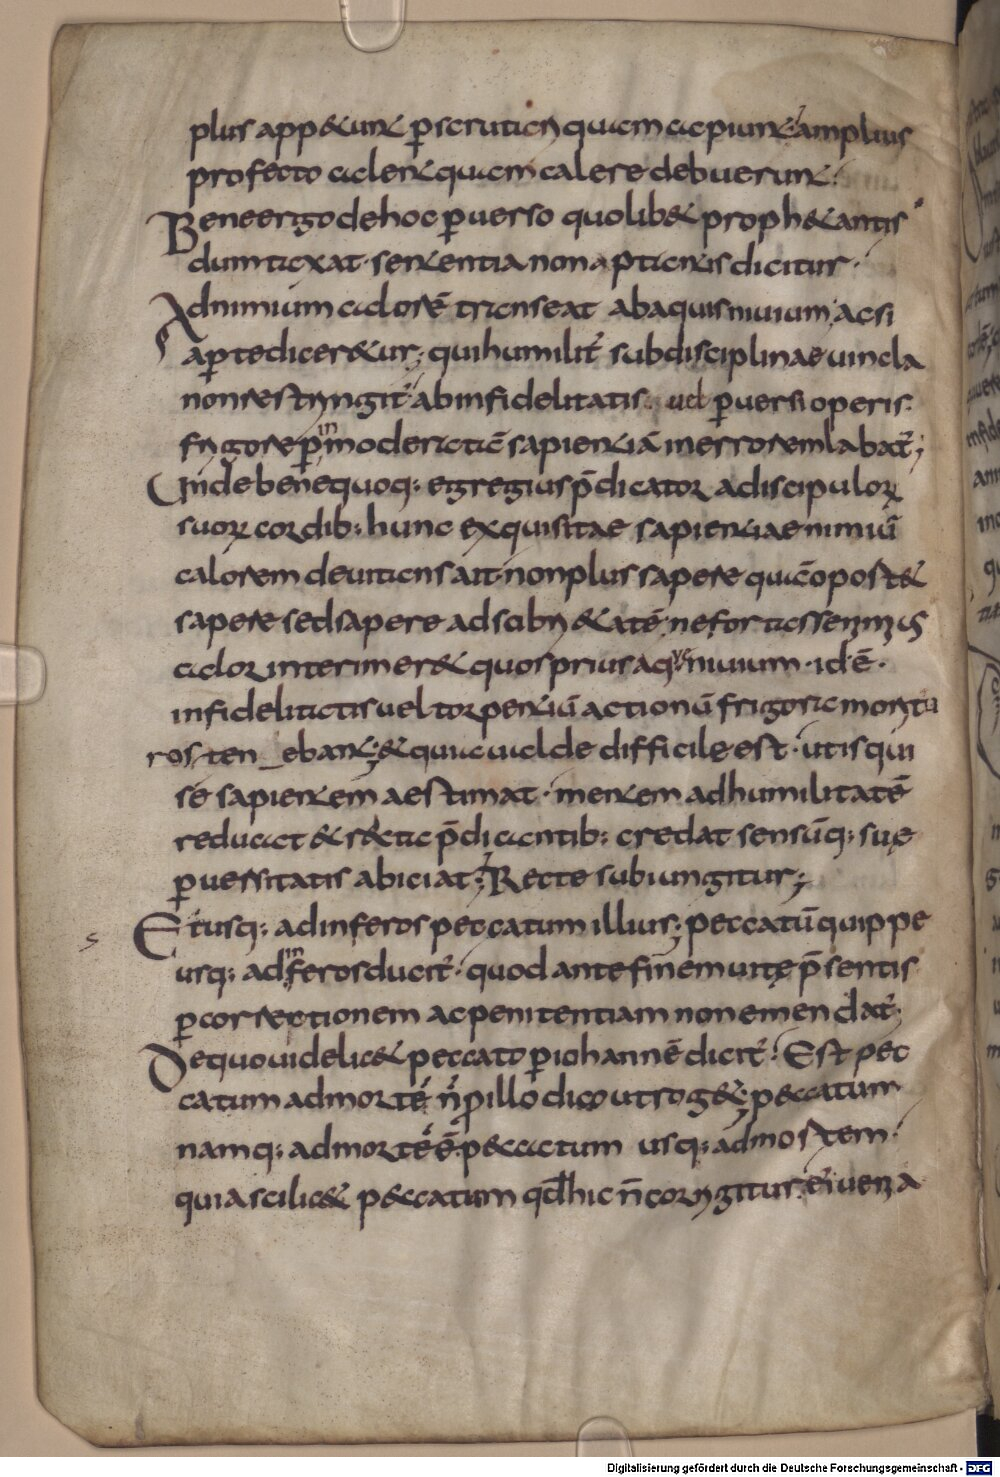 plus app&unt p̲scrutari quam capiunt; amplius
profecto alent quam calere debuerunt;
Bene ergo de hoc p̲uerso quolib& proph&antis
dum taxat· sententia non aptantis dicitur·
Ad nimium calorē transeat ab aquis niuium; acsi
ap̲te dicer&ur; qui humilit̄ sub disciplinae uincla
non restringit̄ ab infidelitatis uel p̲uersi operis·
frigore p̲ inmoderatā sapientiā in errorem labat̄;
Unde bene quoq; egregius p̄dicator a discipuloꝝ
suoꝝ cordib; hunc exquisitae sapientiae nimiū
calorem deuitans ait· non plus sapere quā oport&
sapere sed sapere ad sobri&atē· ne fortassenimis
calor interimer& quos prius aquę niuium· id ē·
infidelitatis uel torpentiū actionū frigora moritu
ros ten_ebant; & quia ualde difficile est· ut is qui
sé sapientem aestimat· mentem ad humilitatē
reducat & recta p̄dicantib; credat sensūq; suę
p̲uersitatis abiciat; Recte subiungitur;
Et usq; ad inferos peccatum illius; peccatū quippe
usq; ad inferos ducit̄· quod ante finem uitę p̄sentis
p̲ correctionem ac penitentiam non emendat̄;
De quo uidelic& peccato p̲ iohannē dicit̄; Est pec
catum ad mortē n̄ p̲ illo dico ut rog& peccatum
namq; ad mortē ē p&catum usq; ad mortem·
quia scilic& p&catum qđ hic n̄ corrigitur; ei uenia